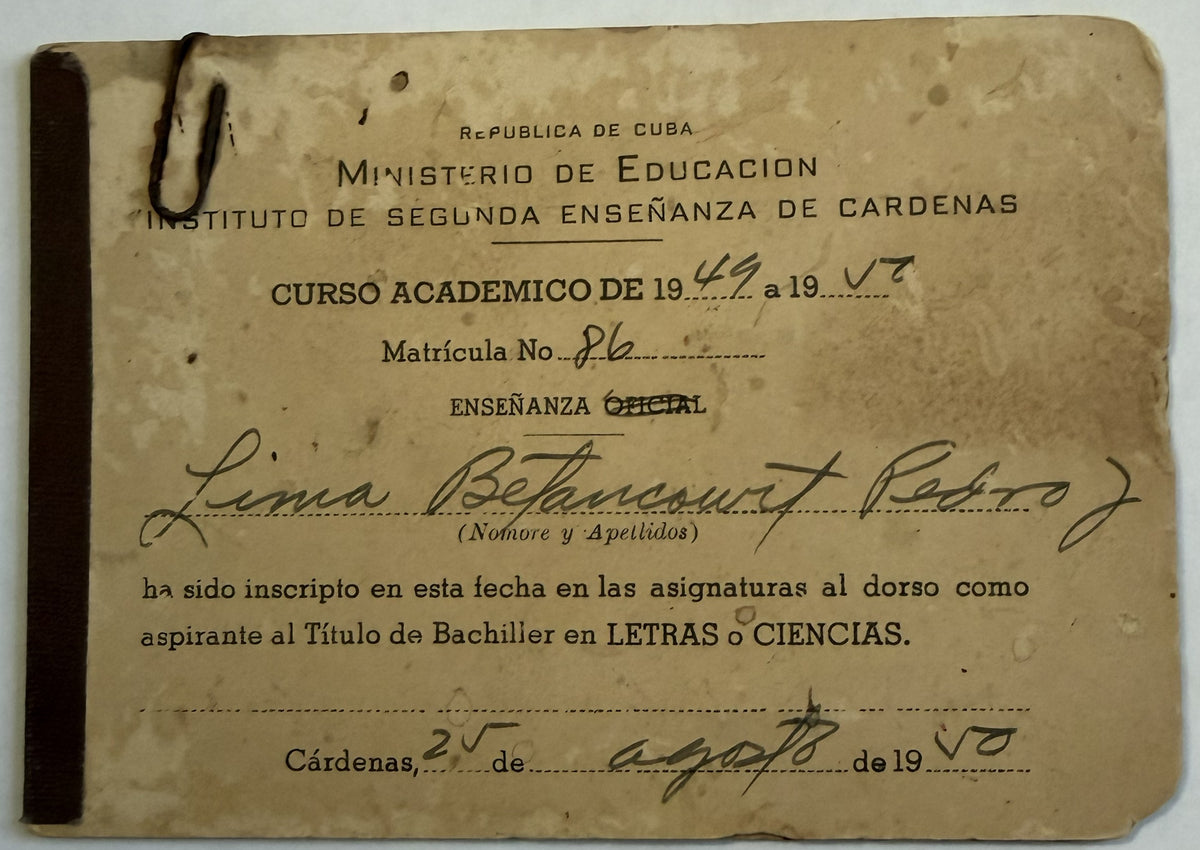 REPUBLICA DE CUBA
MINISTERIO DE EDUCACION
INSTITUTO DE SEGUNDA ENSEÑANZA DE CARDENAS
CURSO ACADEMICO DE 1949 a 1950
Matrícula No 86
ENSEÑANZA OFICIAL
Lima Betancourt Pedro J
(Nomore y Apellidos)
ha sido inscripto en esta fecha en las asignaturas al dorso como
aspirante al Título de Bachiller en LETRAS o CIENCIAS.
Cárdenas, 25 de agosto de 1950